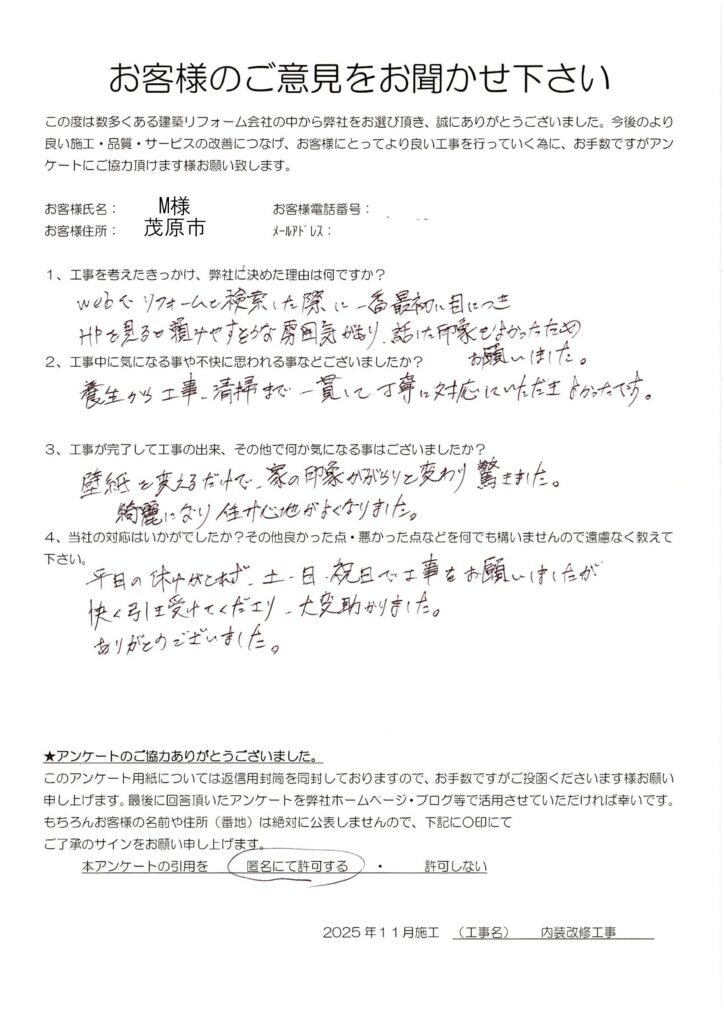 お客様のご意見をお聞かせ下さい
この度は数多くある建築リフォーム会社の中から弊社をお選び頂き、誠にありがとうございました。今後のより
良い施工・品質・サービスの改善につなげ、お客様にとってより良い工事を行っていく為に、お手数ですがアン
ケートにご協力頂けます様お願い致します。
お客様氏名： M様 お客様電話番号：
お客様住所： 茂原市 ﾒｰﾙｱﾄﾞﾚｽ：
１、工事を考えたきっかけ、弊社に決めた理由は何ですか？
webでリフォームと検索した際に一番最初に目につき
HPを見ると頼みやすそうな雰囲気があり、話した印象もよかったため
お願いしました。
２、工事中に気になる事や不快に思われる事などございましたか？
養生から工事、清掃まで一貫して丁寧に対応していただきよかったです。
３、工事が完了して工事の出来、その他で何か気になる事はございましたか？
壁紙を変えるだけで、家の印象ががらりと変わり驚きました。
綺麗になり住み心地がよくなりました。
４、当社の対応はいかがでしたか？その他良かった点・悪かった点などを何でも構いませんので遠慮なく教えて
下さい。
平日の休みがとれず、土・日・祝日で工事をお願いしましたが
快く引き受けてくださり、大変助かりました。
ありがとうございました。
★アンケートのご協力ありがとうございました。
このアンケート用紙については返信用封筒を同封しておりますので、お手数ですがご投函くださいます様お願い
申し上げます。最後に回答頂いたアンケートを弊社ホームページ・ブログ等で活用させていただければ幸いです。
もちろんお客様の名前や住所（番地）は絶対に公表しませんので、下記に〇印にて
ご了承のサインをお願い申し上げます。
本アンケートの引用を 匿名にて許可する ・ 許可しない
2025年11月施工 （工事名） 内装改修工事